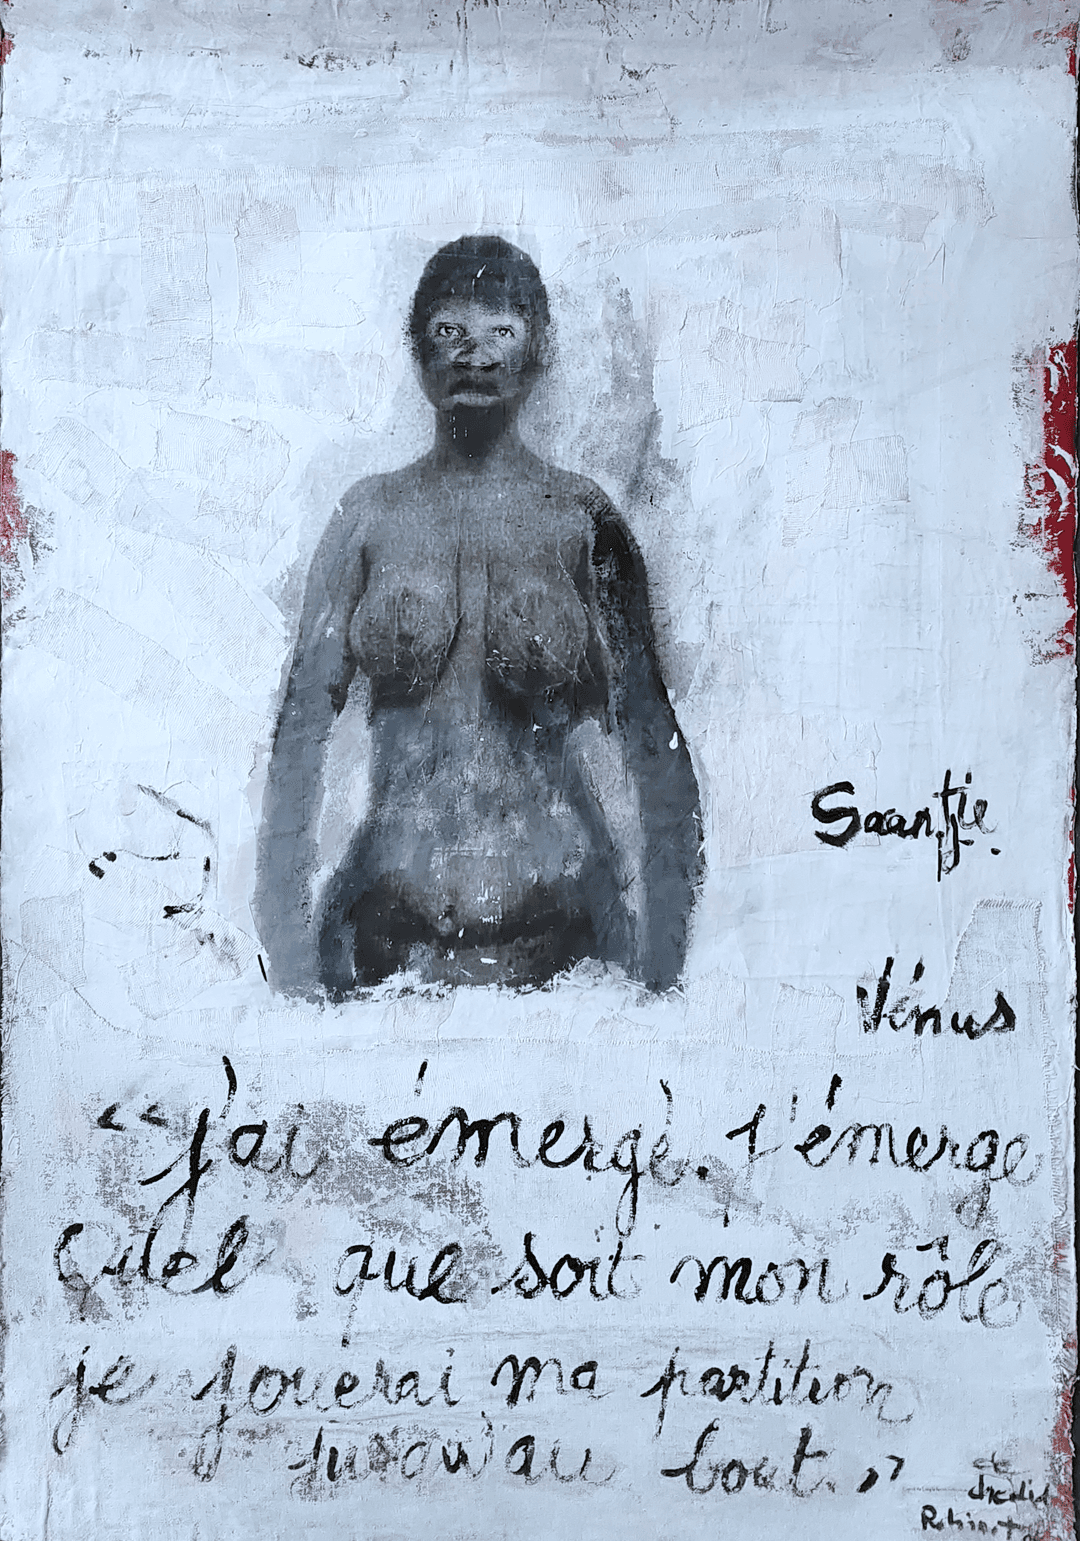 Saartjie.
Vénus
"j'ai émergé. J'émerge
Quel que soit mon rôle
je jouerai ma partition
jusqu'au bout."